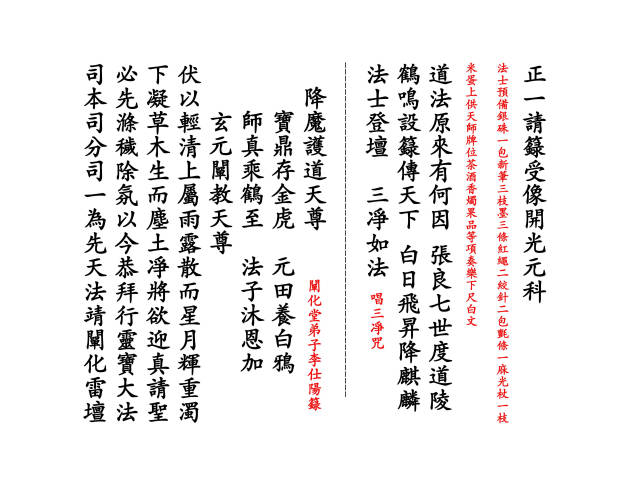 正一請籙受像開光元科
法士預備銀硃一包新筆三枝墨三條紅繩二絞針二包氈條一麻光杖一枝
米蛋上供天師牌位茶酒香燭果品等項奏樂下尺白文
道法原來有何因 張良七世度道陵
鶴鳴設籙傳天下 白日飛昇降麒麟
法士登壇 三凈如法 唱三凈咒
降魔護道天尊 闡化堂弟子李仕陽籙
寶鼎存金虎 元田養白鴉
師真乘鶴至 法子沐恩加
玄元闡教天尊
伏以輕清上屬雨露散而星月輝重濁
下凝草木生而塵土凈將欲迎真請聖
必先滌穢除氛以今恭拜行靈寶大法
司本司分司一為先天法靖闡化雷壇